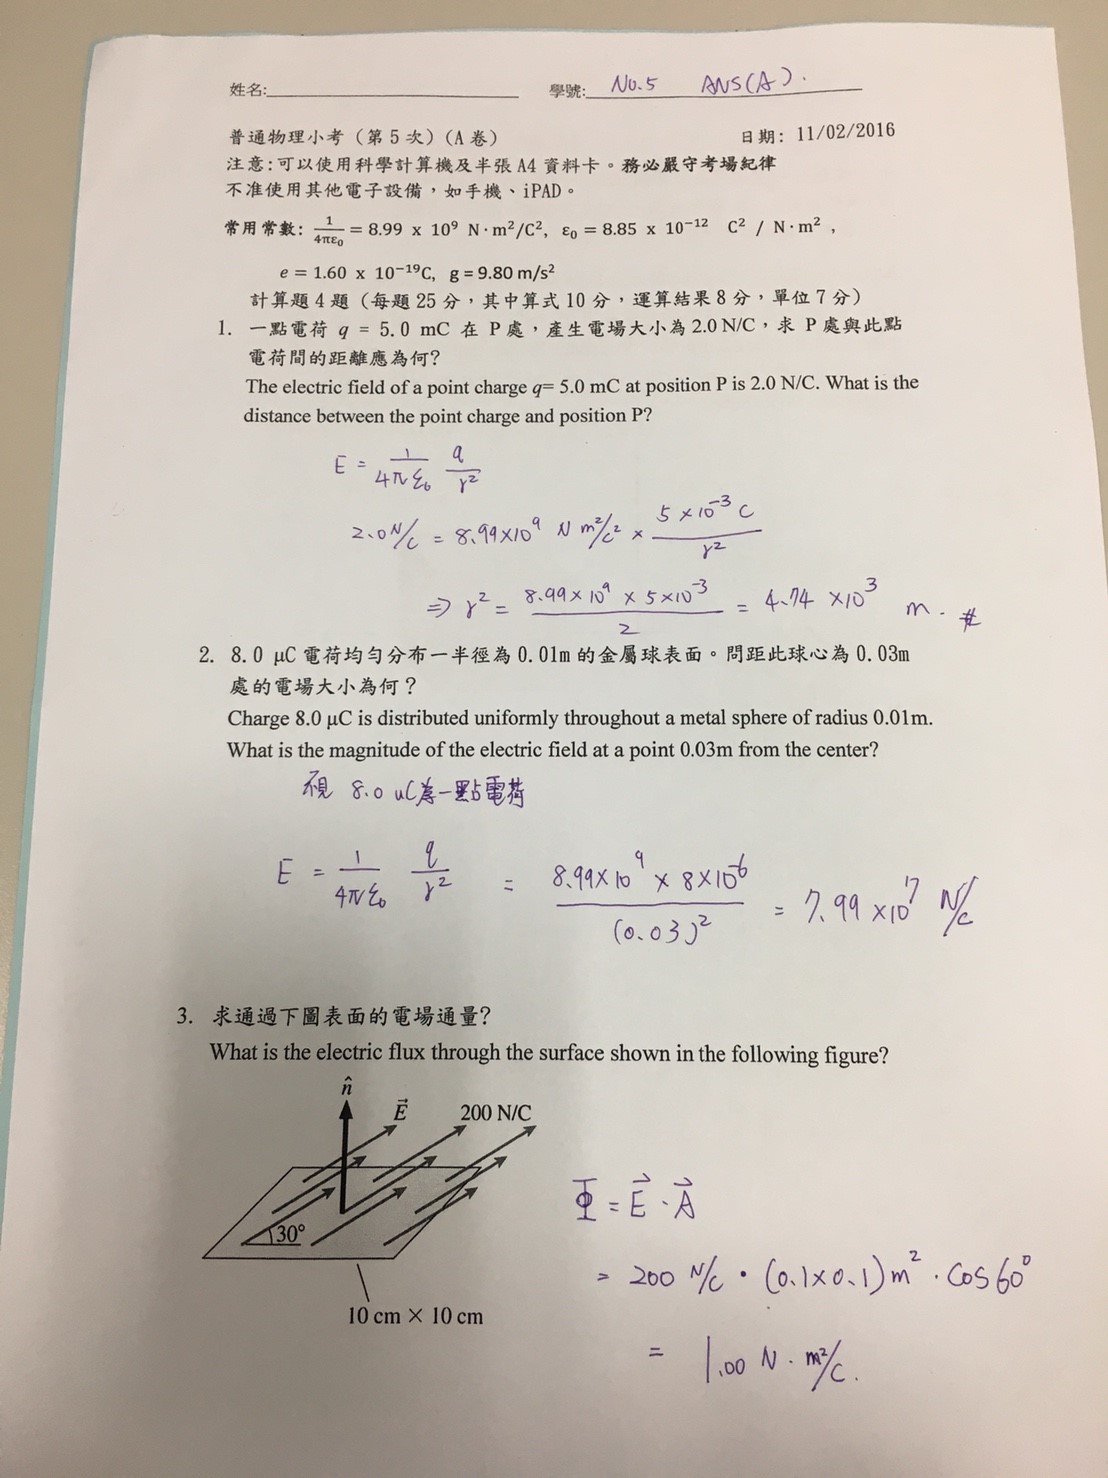 姓名:____________ 學號: No.5 ANS(A).
普通物理小考(第5次)(A卷) 日期: 11/02/2016
注意:可以使用科學計算機及半張A4資料卡。務必嚴守考場紀律
不准使用其他電子設備,如手機、iPAD。
常用常數: 1/4πε₀ = 8.99 x 10⁹ N·m²/C², ε₀ = 8.85 x 10⁻¹² C² / N·m² ,
e = 1.60 x 10⁻¹⁹C, g = 9.80 m/s²
計算題4題(每題25分,其中算式10分,運算結果8分,單位7分)
1. 一點電荷 q = 5.0 mC 在 P處,產生電場大小為2.0 N/C,求 P處與此點
電荷間的距離應為何?
The electric field of a point charge q= 5.0 mC at position P is 2.0 N/C. What is the
distance between the point charge and position P?
E = 1/4πε₀ q/r²
2.0 N/C = 8.99×10⁹ N m²/c² × 5×10⁻³ C/r²
⇒ r² = 8.99×10⁹ × 5×10⁻³/2 = 4.74 ×10³ m. #
2. 8.0 μC 電荷均勻分布一半徑為0.01m的金屬球表面。問距此球心為0.03m
處的電場大小為何?
Charge 8.0 μC is distributed uniformly throughout a metal sphere of radius 0.01m.
What is the magnitude of the electric field at a point 0.03m from the center?
視 8.0 uC為一點電荷
E = 1/4πε₀ q/r² = 8.99×10⁹ × 8×10⁻⁶/(0.03)² = 7.99 ×10⁷ N/c
3. 求通過下圖表面的電場通量?
What is the electric flux through the surface shown in the following figure?
n̂
E⃗ 200 N/C
30°
10 cm × 10 cm
Φ = E⃗ · A⃗
= 200 N/C · (0.1×0.1) m² · cos60°
= 1.00 N · m²/C.